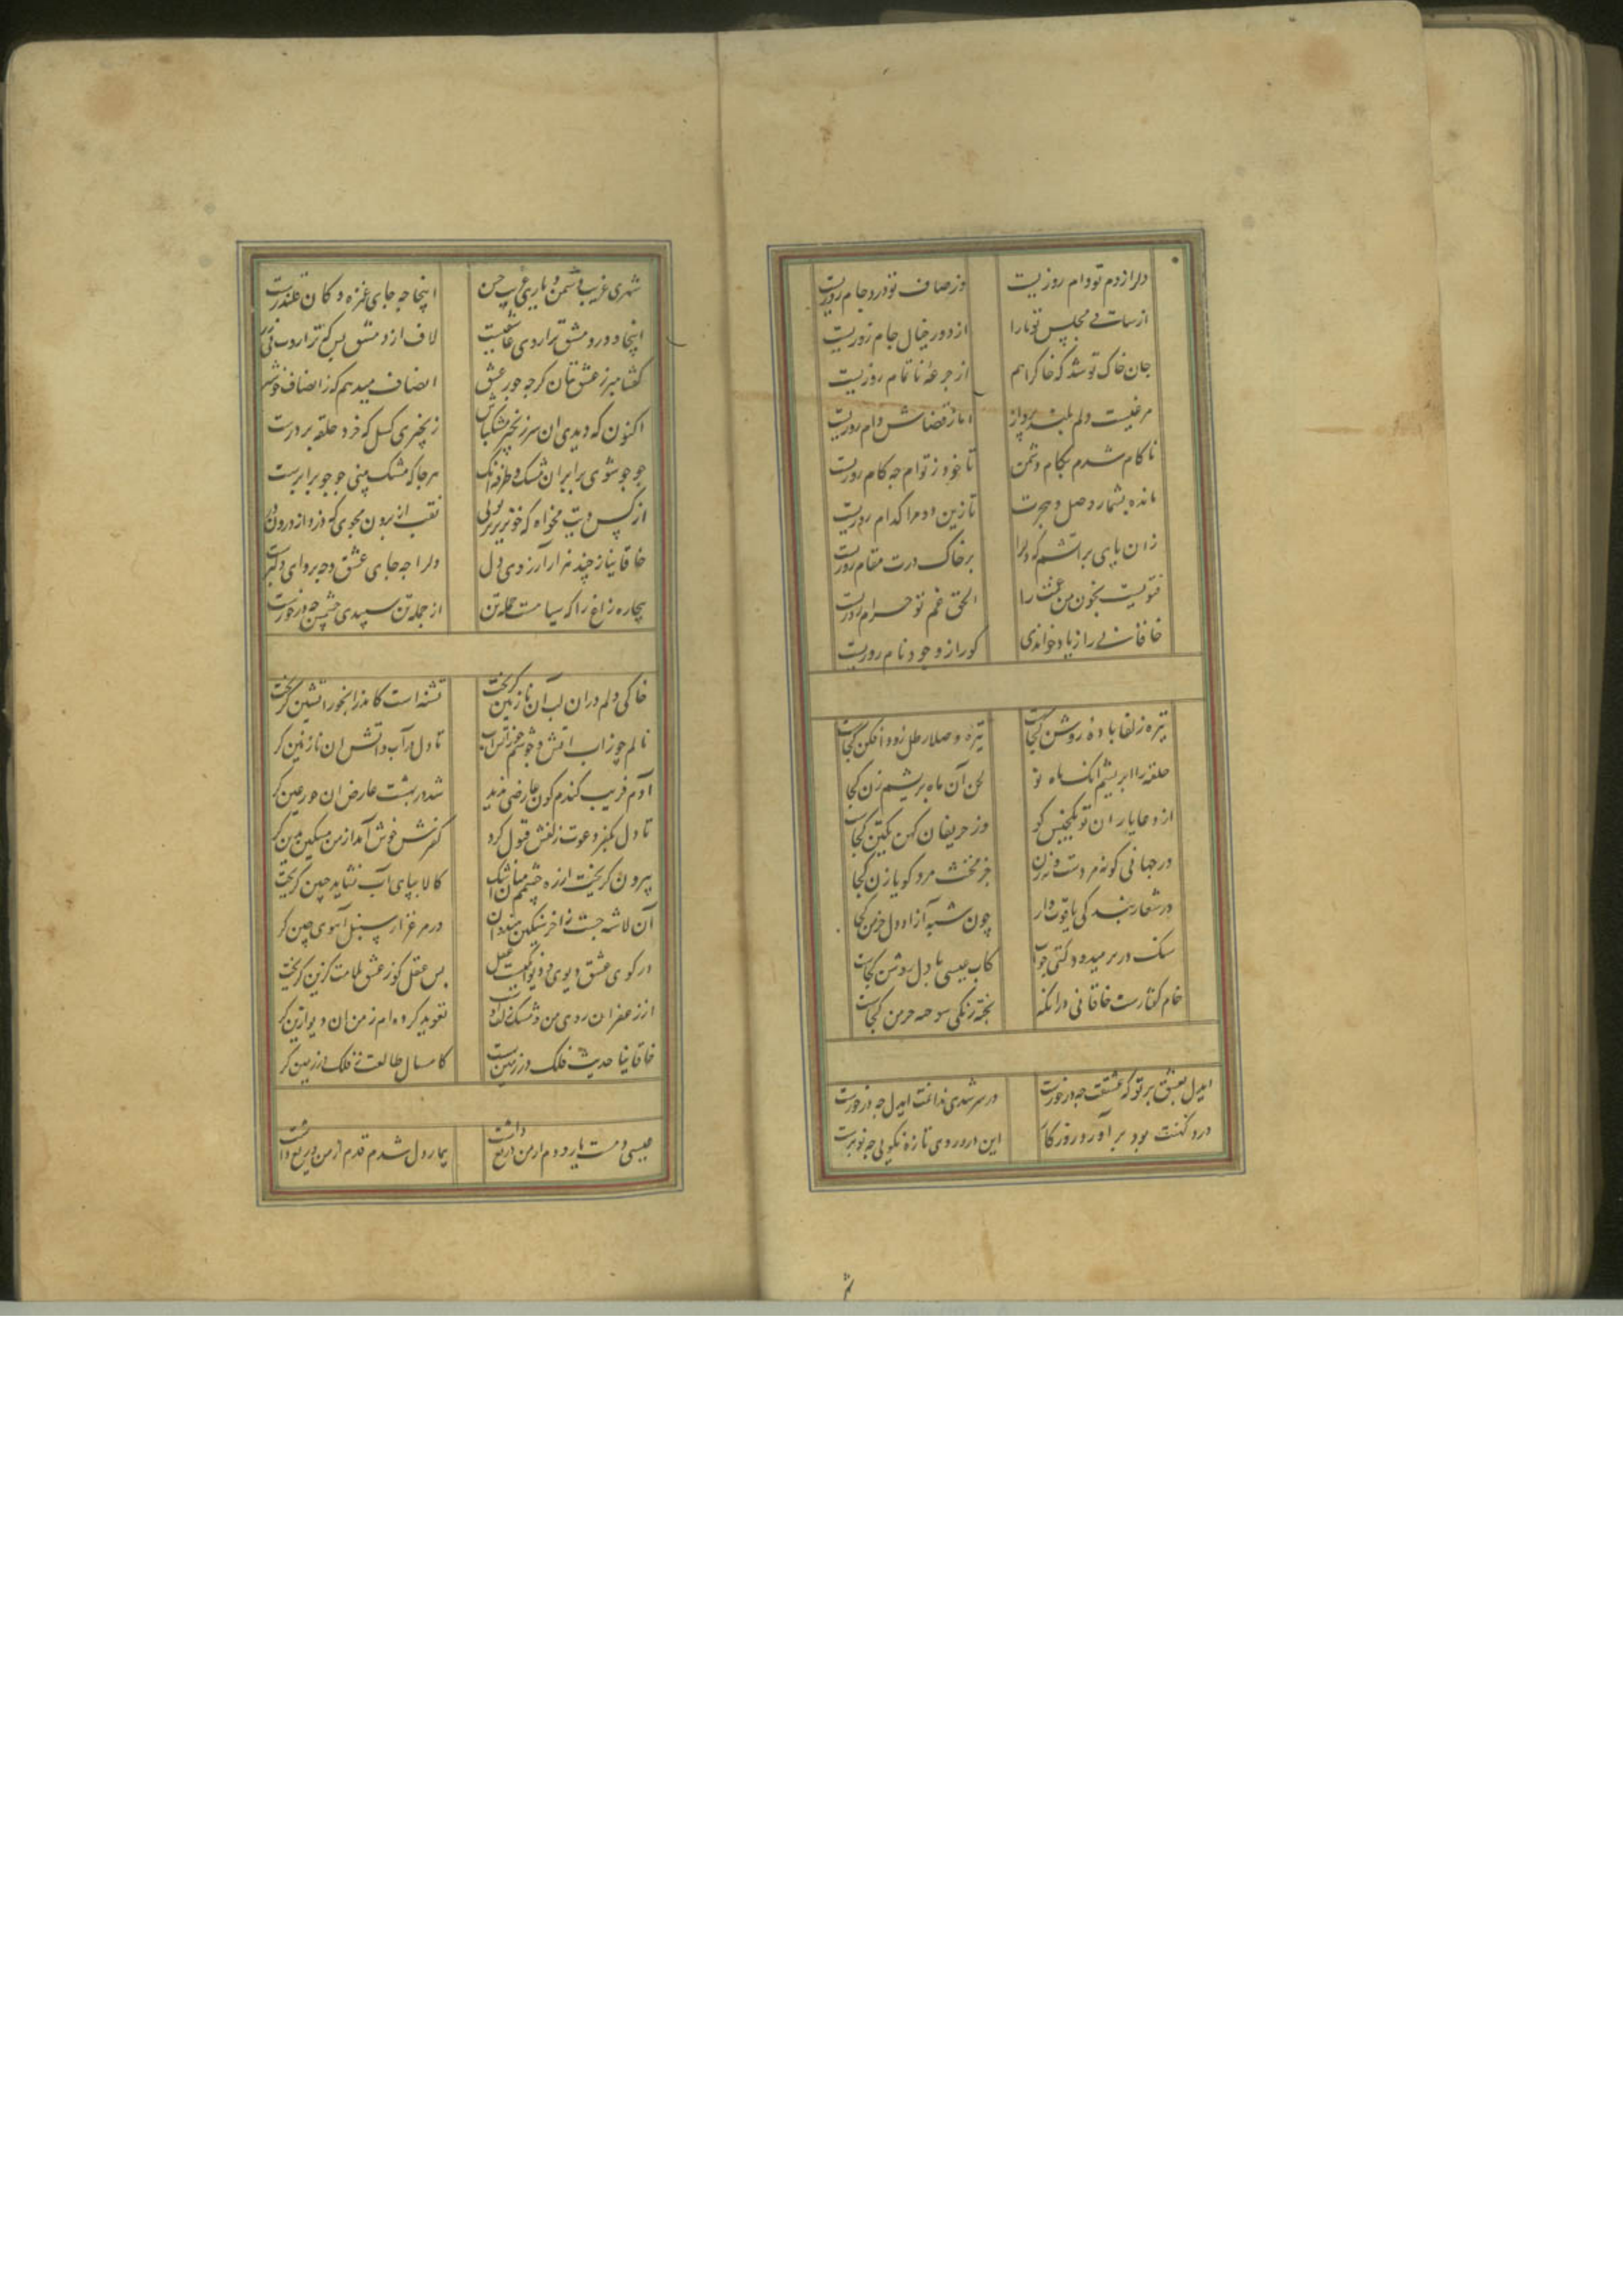 دلرا ز دم تو دام روزیست وز صاف تو درد جام روزیست
از ساقی مجلس تو ما را از دور خیال جام روزیست
جان خاک تو شد که خاکرا هم از جرعهٔ ناتمام روزیست
مرغیست دلم بلند پرواز اما ز قضاش دام روزیست
ناکام شدم بکام دشمن تا خود ز توام چه کام روزیست
مانده بشمار وصل و هجرت تا زین دو مرا کدام روزیست
زان پایی بر آتشم که دلرا بر خاک درت مقام روزیست
فتویست بخون من غمت را الحق غم تو حرام روزیست
خاقانی را ز یاد خواندی کورا ز وجود نام روزیست
تیره زلفا بادهٔ روشن کجاست تیره وصلا رطل زود افکن کجاست
حلقه را ابریشم آنک ماه نو لحن آن ماه بریشم زن کجا
از وغایاران تو یکجنس کو وز حریفان کهن یکتن کجاست
در جهانی کو نه مردست و نه زن جز مخنث مرد کو یا زن کجا
در شعار بندگی یاقوت وار چون شبه آزاد دل خرمن کجا
کاب عیسی با دل روشن کجاست
خام گفتارست خاقانی در آنکه پخته رنگی سوخته خرمن کجاست
ایدل بعشق بر تو که عشقت چه درخورست در سر شدی ندانمت ایدل چه در خورست
درد کهنت بود بر آورد روزکار این درد روی تازه نکویی چه نوبرست
شهری غریب دشمن و یاری غریب حسن اینجا چه جای غمزه دکان قلندرست
اینجا و درد مشق ترا روی عافیت لاف از دمشق بس که ترازوت بی زرست
گفتا مبر ز عشق بتان گرچه جور عشق انصاف میدهم که ز انصاف خوشترست
اکنون که دیدی آن سر زنجیر مشکباش زنجیری کسل که خرد حلقه بر درست
جو جو شوی برابر آن مشک و طرفه آنک هرجا که مشک بینی جو جو برابرست
از کس دیت مخواه که خونریز تو تویی نقب از برون مجوی که دزد از درون درست
خاقانیا ز چند هزار آرزوی دل دلرا چه جای عشق و چه پروای دلبرست
بیچاره زاغ را که سیاهست جمله تن از جمله تن سپیدی چشمش چه درخورست
خاکی دلم در آن لب آن نازنین گریخت تشنه است کاندر آبخور آتشین گریخت
نالم چو ز آب آتش و جوشم چو ز آتش آب تا دل در آب و آتش آن نازنین گر
آدم فریب گندم گون عارضی بدید شد در بهشت عارض آن حور عین گر
تا دل بکفر دعوت زلفش قبول کرد کفرش خوش آمد از من مسکین بدین گر
بیرون گریخت از ره چشمم میان اشک کالا بپای آب نشاید چنین گریخت
آن لاشه جست ز آخر سنگین در مرغزار سنبل آهوی چین گر
در کوی عشق دیوی و دیوانگیست عقل بس عقل کو ز عشق ملامت گزین گریخت
از زعفران روی من و مشک زلف تعوید کرده‌ام ز من آن دیو ازین گر
خاقانیا حدیث فلک در زمین به است کامسال طالعت ز فلک در زمین گر
عیسی دمست یار و دم از من دریغ داشت بیمار دل شدم قدم از من دریغ داشت